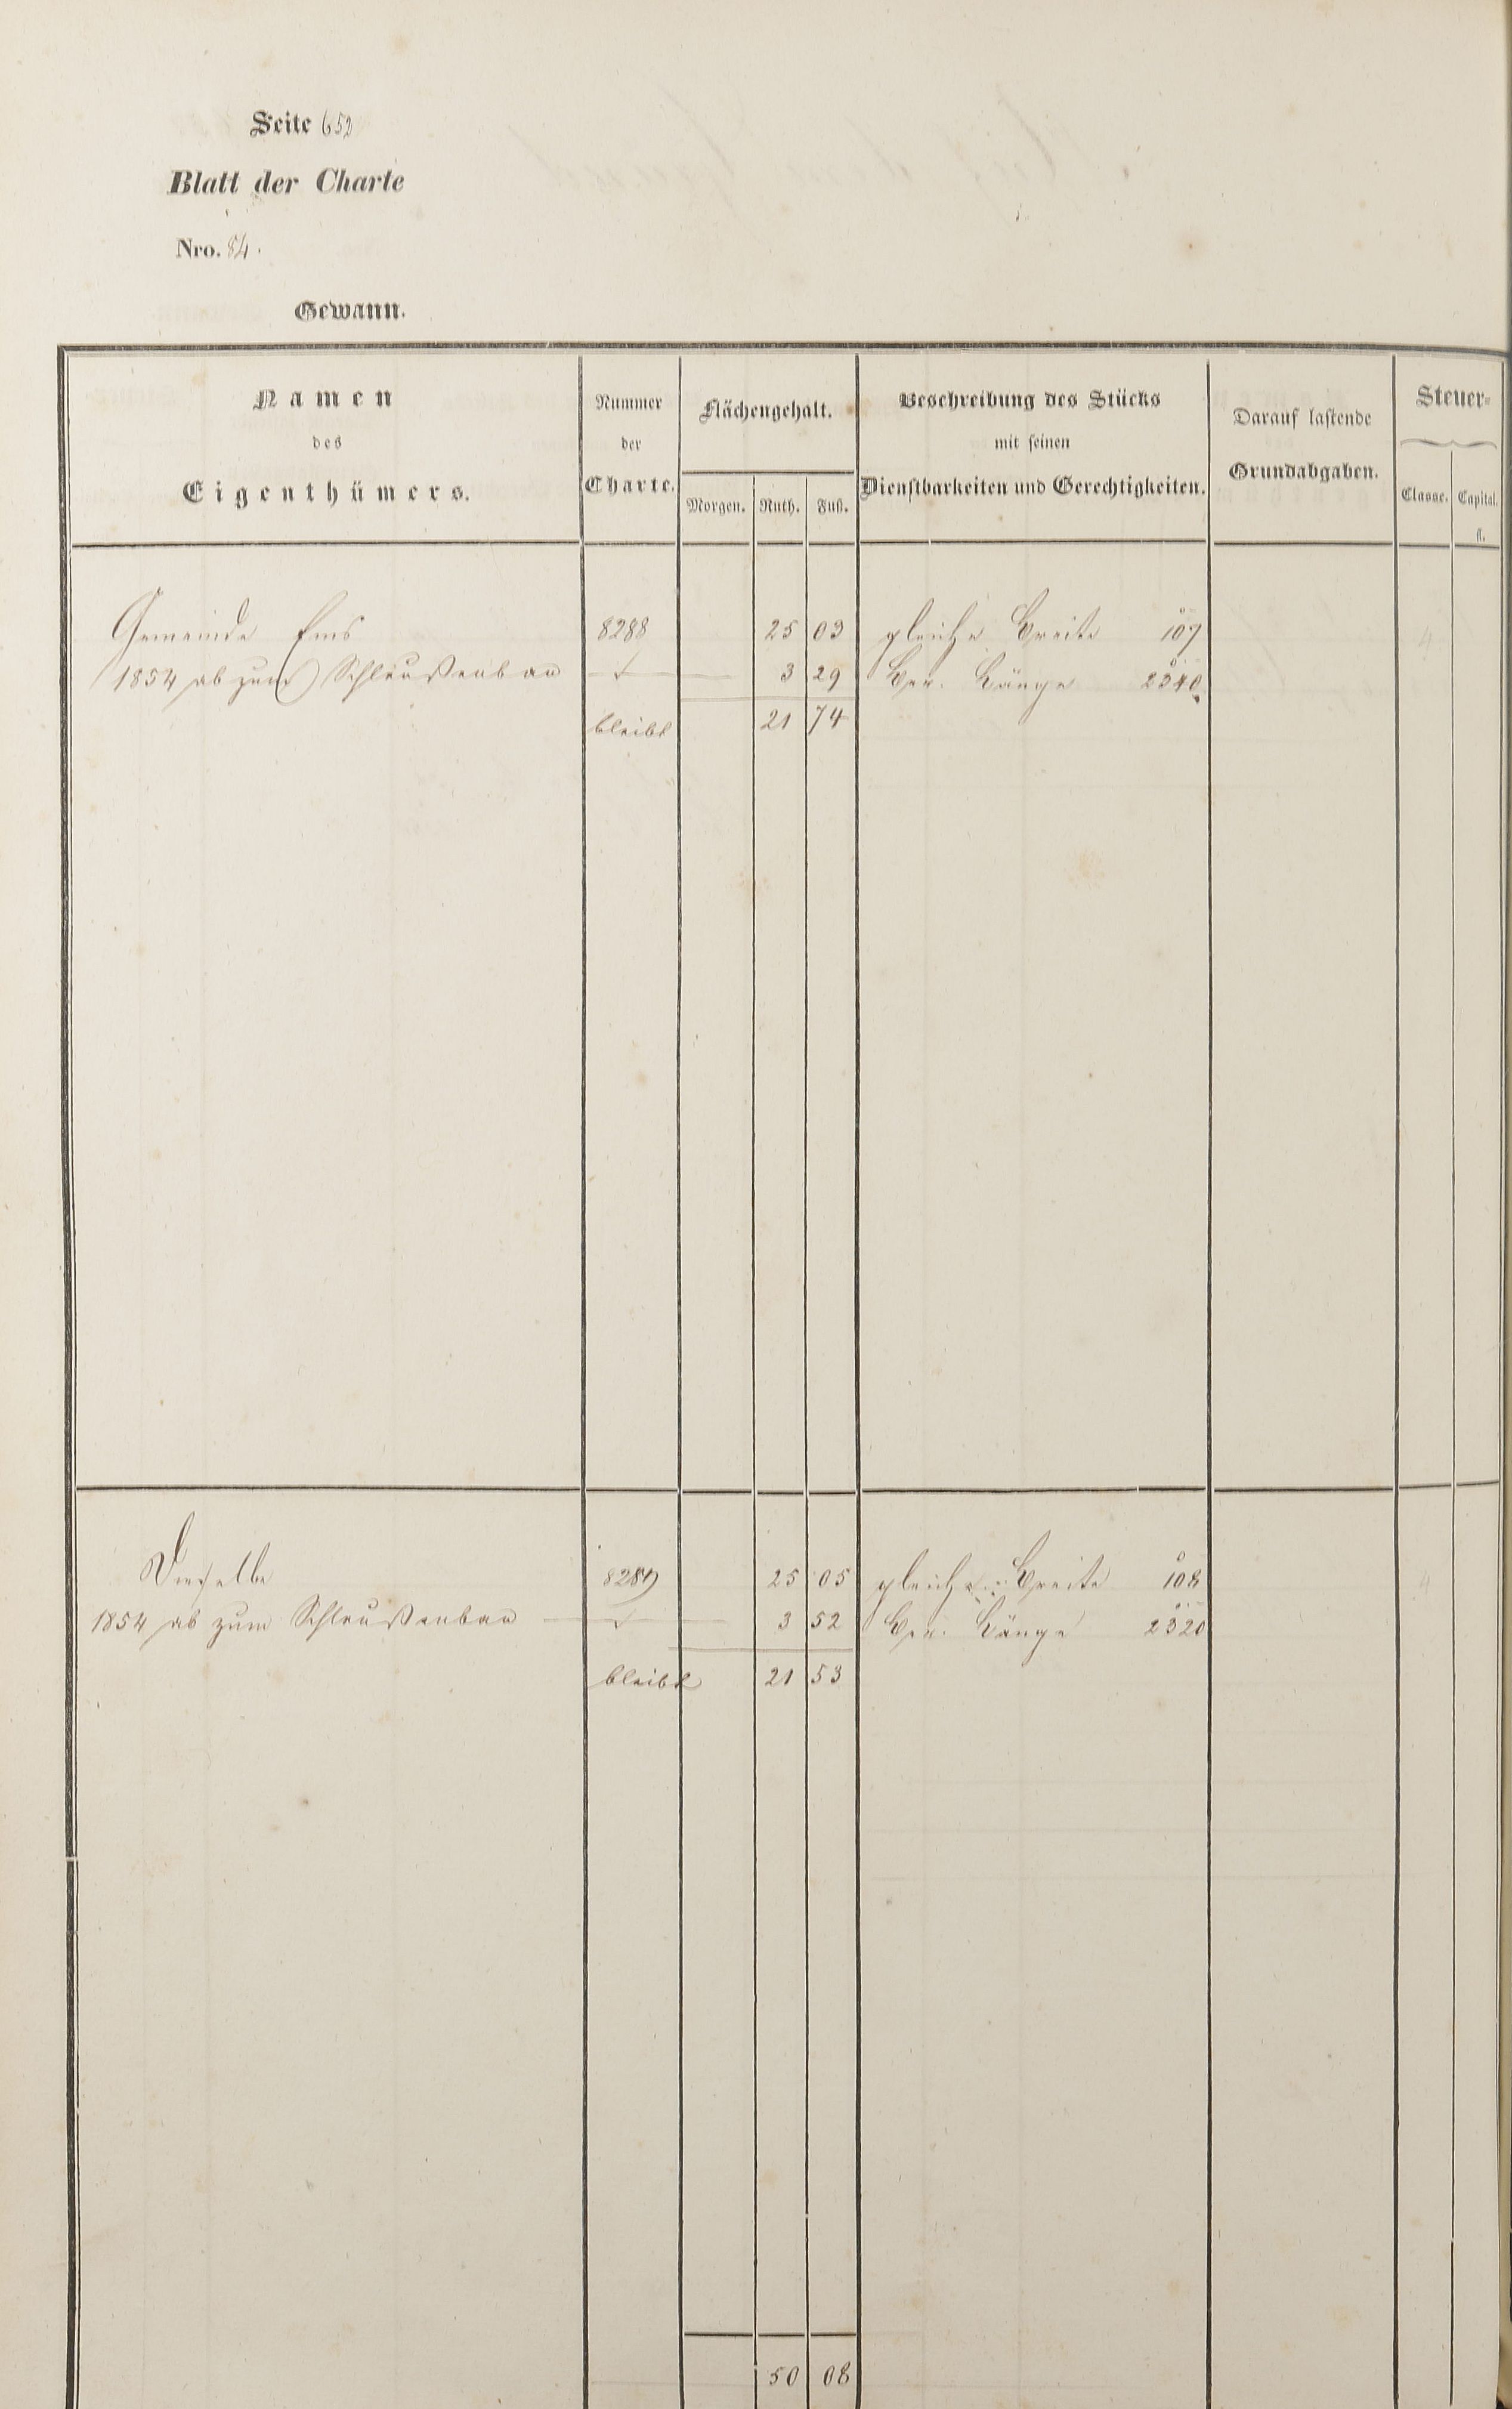 Seite 652
Blatt der Charte
Nro. 84.
Gewann.
Namen des Eigenthümers.
Nummer der Charte.
Flächengehalt.
Morgen. Ruth. Fuß.
Beschreibung des Stücks mit seinen Dienstbarkeiten und Gerechtigkeiten.
Darauf lastende Grundabgaben.
Steuer-
Classe. Capital.
fl.
Gemeinde Ems 8288 25 03 gleiche Breite 107 4
1854 ab zum Schleußenbau 3 29 Ber. Länge 2340
bleibt 21 74
Dieselbe 8289 25 05 gleiche Breite 108 4
1854 ab zum Schleußenbau 3 52 Ber. Länge 2320
bleibt 21 53
50 08